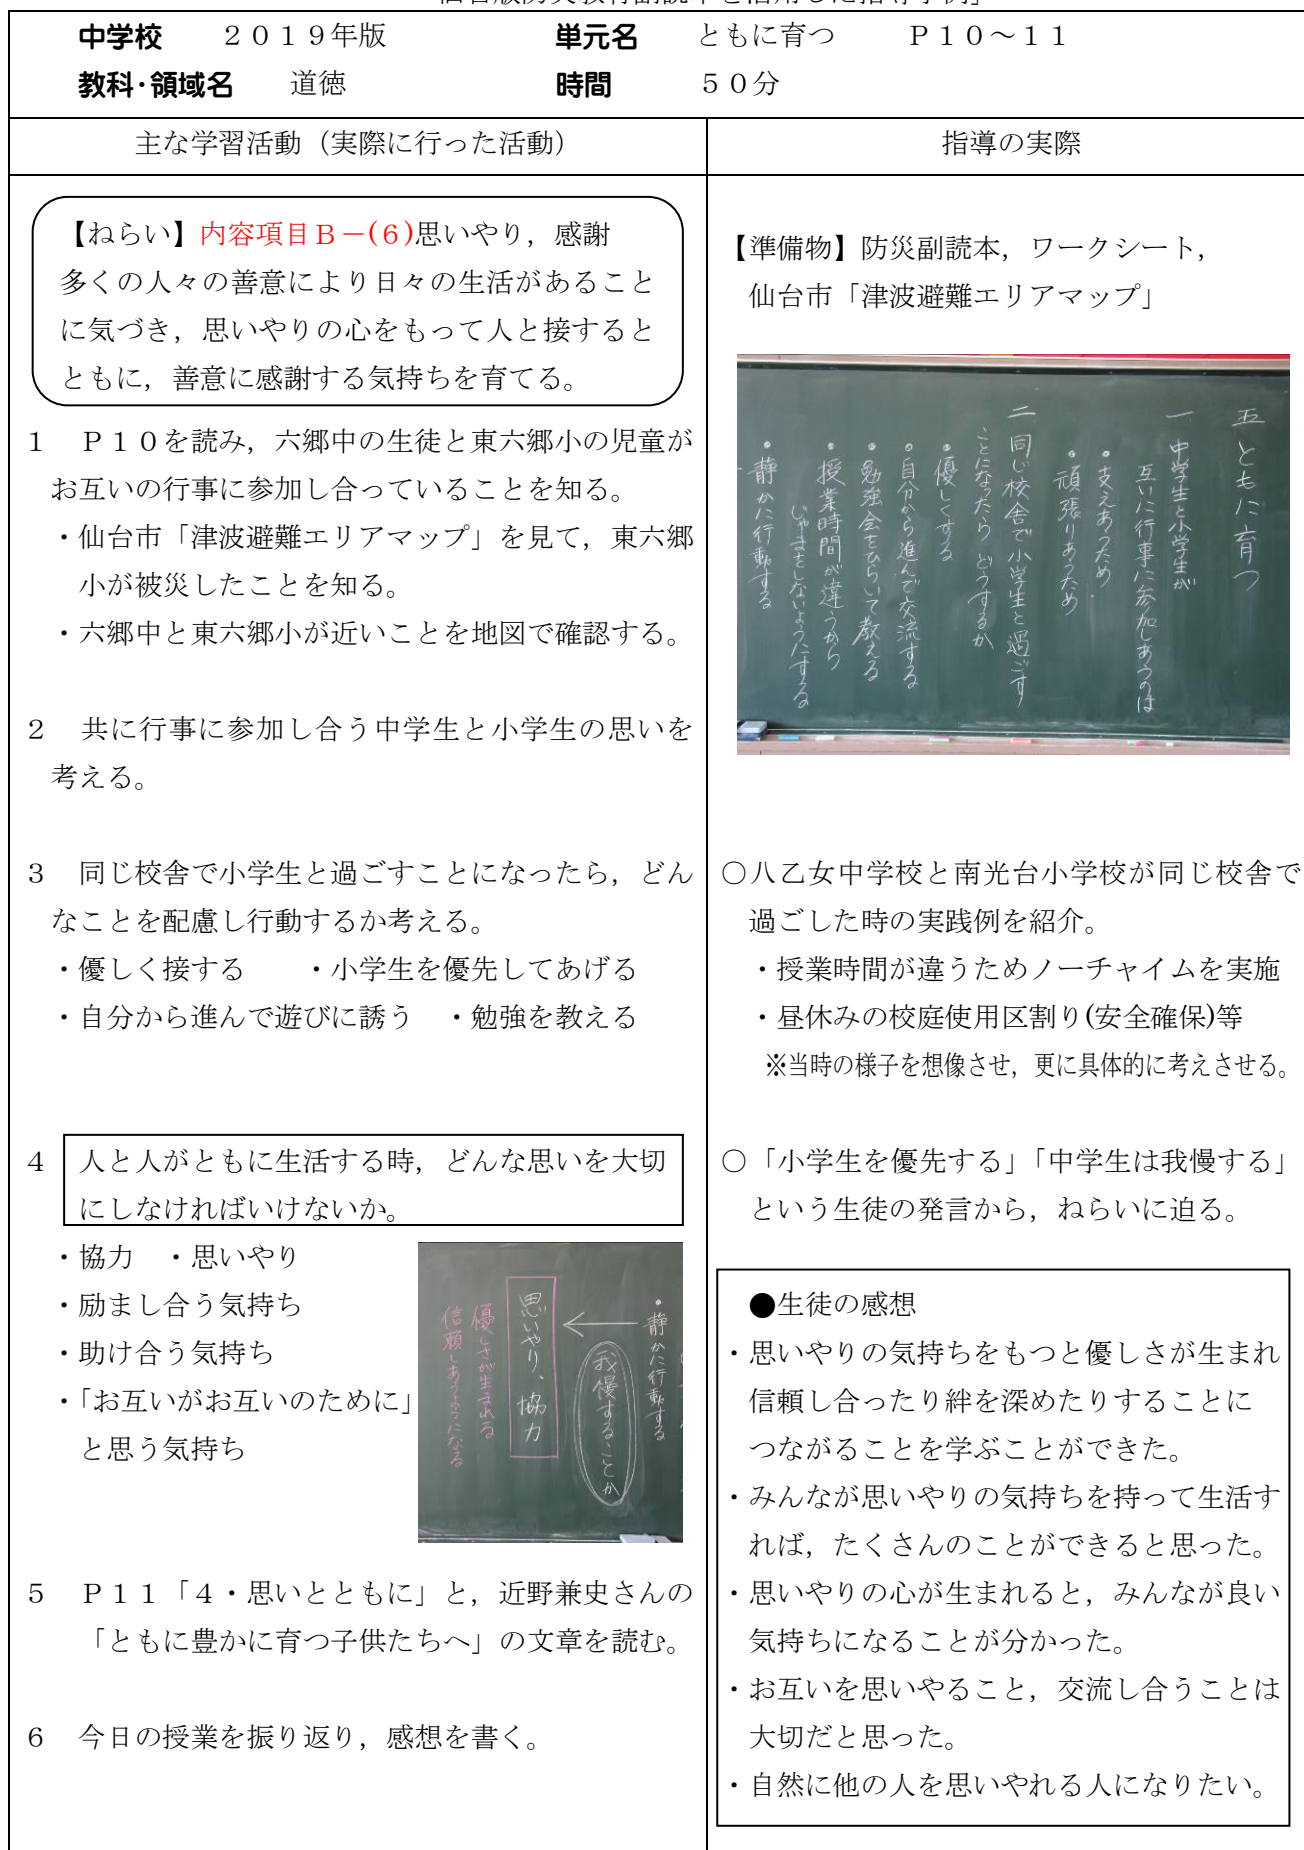 中学校　２０１９年版　単元名　ともに育つ　Ｐ１０～１１
教科・領域名　道徳　時間　５０分
主な学習活動（実際に行った活動）
指導の実際
【ねらい】内容項目Ｂ－(６)思いやり，感謝
多くの人々の善意により日々の生活があること
に気づき，思いやりの心をもって人と接すると
ともに，善意に感謝する気持ちを育てる。
１　Ｐ１０を読み，六郷中の生徒と東六郷小の児童が
お互いの行事に参加し合っていることを知る。
・仙台市「津波避難エリアマップ」を見て，東六郷
小が被災したことを知る。
・六郷中と東六郷小が近いことを地図で確認する。
２　共に行事に参加し合う中学生と小学生の思いを
考える。
３　同じ校舎で小学生と過ごすことになったら，どん
なことを配慮し行動するか考える。
・優しく接する　・小学生を優先してあげる
・自分から進んで遊びに誘う　・勉強を教える
４　人と人がともに生活する時，どんな思いを大切
にしなければいけないか。
・協力　・思いやり
・励まし合う気持ち
・助け合う気持ち
・「お互いがお互いのために」
と思う気持ち
・静かに行動する
我慢することか
思いやり、協力
優しさが生まれる
信頼しあうようになる
５　Ｐ１１「４・思いとともに」と，近野兼史さんの
「ともに豊かに育つ子供たちへ」の文章を読む。
６　今日の授業を振り返り，感想を書く。
【準備物】防災副読本，ワークシート，
仙台市「津波避難エリアマップ」
五 ともに育つ
一 中学生と小学生が
互いに行事に参加しあうのは
・支えあうため
・頑張りあうため
二 同じ校舎で小学生と過ごす
ことになったら どうするか
・優しくする
・自分から進んで交流する
・勉強会をひらいて教える
・授業時間が違うから
じゃまをしないようにする
・静かに行動する
○八乙女中学校と南光台小学校が同じ校舎で
過ごした時の実践例を紹介。
・授業時間が違うためノーチャイムを実施
・昼休みの校庭使用区割り(安全確保)等
※当時の様子を想像させ，更に具体的に考えさせる。
○「小学生を優先する」「中学生は我慢する」
という生徒の発言から，ねらいに迫る。
●生徒の感想
・思いやりの気持ちをもつと優しさが生まれ
信頼し合ったり絆を深めたりすることに
つながることを学ぶことができた。
・みんなが思いやりの気持ちを持って生活す
れば，たくさんのことができると思った。
・思いやりの心が生まれると，みんなが良い
気持ちになることが分かった。
・お互いを思いやること，交流し合うことは
大切だと思った。
・自然に他の人を思いやれる人になりたい。